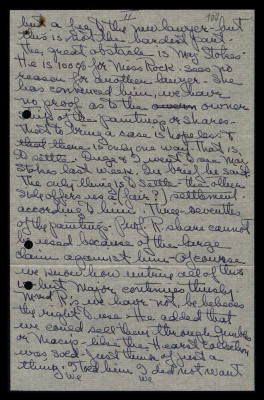 11
but a fee to the new lawyer - but
this is not the hardest part.
The great obstacle is Maj Stokes -
He is 100% for Miss Rock - sees no
reason for another lawyer. She
has convinced him, we have
no proof as to the owner
ship of the paintings or shares -
that to bring a case is hopeless &
that there is only one way. That is,
to settle. Inga & I went to see Maj
Stokes last week. In brief he said
The only thing is to settle - the other
side offers us a (fair?) settlement
according to him. Three-sevenths
of the paintings - Prof. R. share cannot
be used because of the large
claim against him - Of course
we know how untrue all of this
is but Major continues thusly
R's we have not, he believes
the right to use. He added that
we could sell them through Gimbels
or Macys - like the Hearst collection
was sold - just think of just a
thing. I told him I did not want
we we